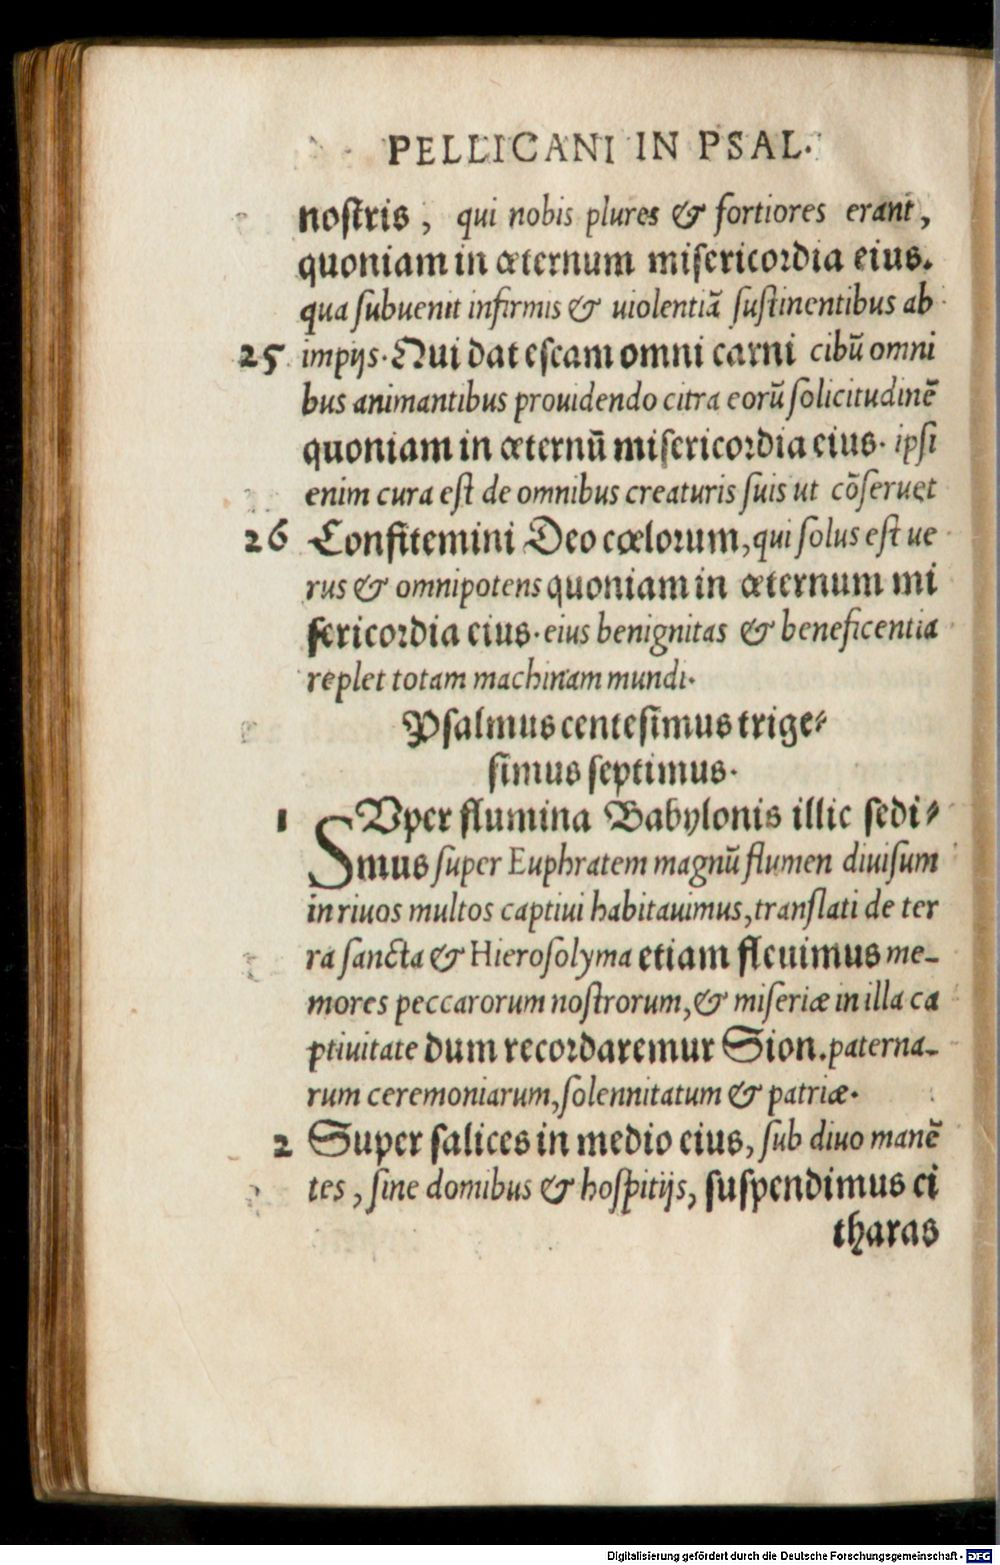 PELLICANI IN PSAL.
nostris, qui nobis plures & fortiores erant,
quoniam in æternum misericordia eius.
qua subuenit infirmis & uiolentiã sustinentibus ab
25 impijs. Qui dat escam omni carni cibũ omni
bus animantibus prouidendo citra eorũ solicitudinẽ
quoniam in æternũ misericordia eius. ipsi
enim cura est de omnibus creaturis suis ut cõseruet
26 Confitemini Deo cœlorum, qui solus est ue
rus & omnipotens quoniam in æternum mi
sericordia eius. eius benignitas & beneficentia
replet totam machinam mundi.
Psalmus centesimus trige⸗
simus septimus.
1 SVper flumina Babylonis illic sedi⸗
mus super Euphratem magnũ flumen diuisum
in riuos multos captiui habitauimus, translati de ter
ra sancta & Hierosolyma etiam fleuimus me-
mores peccarorum nostrorum, & miseriæ in illa ca
ptiuitate dum recordaremur Sion. paterna-
rum ceremoniarum, solennitatum & patriæ.
2 Super salices in medio eius, sub diuo manẽ
tes, sine domibus & hospitijs, suspendimus ci
tharas
Digitalisierung gefördert durch die Deutsche Forschungsgemeinschaft - DFG